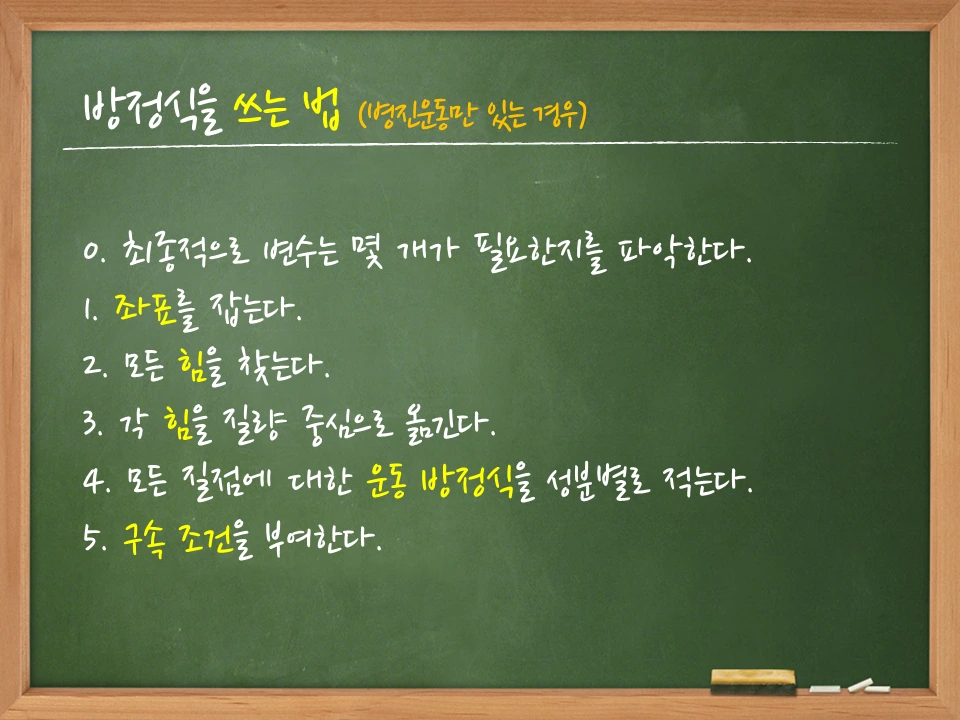 방정식을 쓰는 법 (병진운동만 있는 경우)
0. 최종적으로 변수는 몇 개가 필요한지를 파악한다.
1. 좌표를 잡는다.
2. 모든 힘을 찾는다.
3. 각 힘을 질량 중심으로 옮긴다.
4. 모든 질점에 대한 운동 방정식을 성분별로 적는다.
5. 구속 조건을 부여한다.